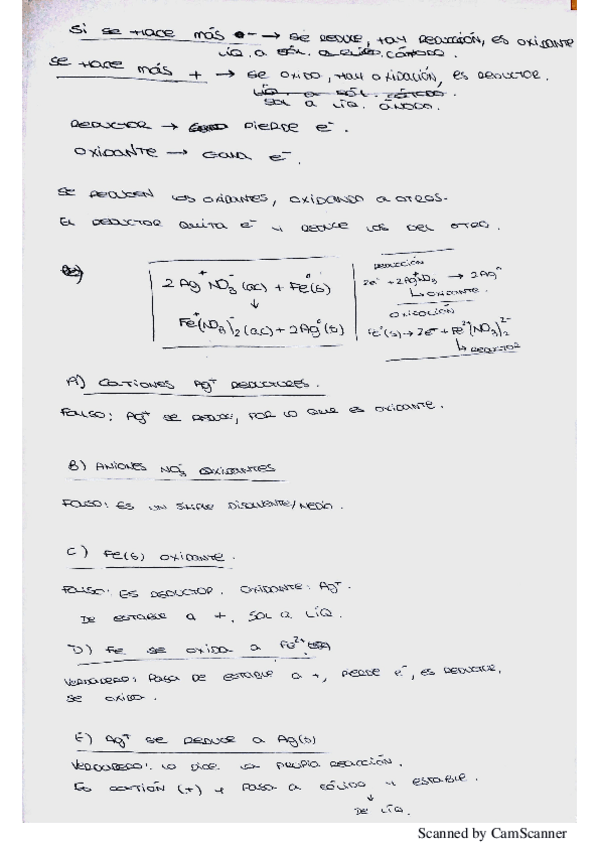 Si se hace más e- → se reduce, hay reducción, es oxidante
líq. a sól. cátodo.
Se hace más + → se oxida, hay oxidación, es reductor.
sol a líq. ánodo.
Reductor → pierde e-.
Oxidante → gana e-.
Se reducen los oxidantes, oxidando a otros.
El reductor quita e- y reduce los del otro.
2Ag⁺NO₃⁻(ac) + Fe⁰(s)
↓
Fe²⁺(NO₃)₂⁻(ac) + 2Ag⁰(s)
Reducción
2e⁻ + 2Ag⁺NO₃ → 2Ag⁰
↳ oxidante.
Oxidación
Fe⁰(s) → 2e⁻ + Fe²⁺(NO₃)₂²⁻
↳ reductor
A) Cationes Ag⁺ reductores.
Falso: Ag⁺ se reduce, por lo que es oxidante.
B) Aniones NO₃⁻ oxidantes
Falso: es un simple disolvente/medio.
C) Fe(s) oxidante.
Falso: es reductor. Oxidante: Ag⁺.
De estable a +, sol a líq.
D) Fe se oxida a Fe²⁺
Verdadero: pasa de estable a +, pierde e⁻, es reductor,
se oxida.
E) Ag⁺ se reduce a Ag(s)
Verdadero: lo dice la propia reacción.
Es catión (+) y pasa a sólido y estable.
↓
de líq.
Scanned by CamScanner